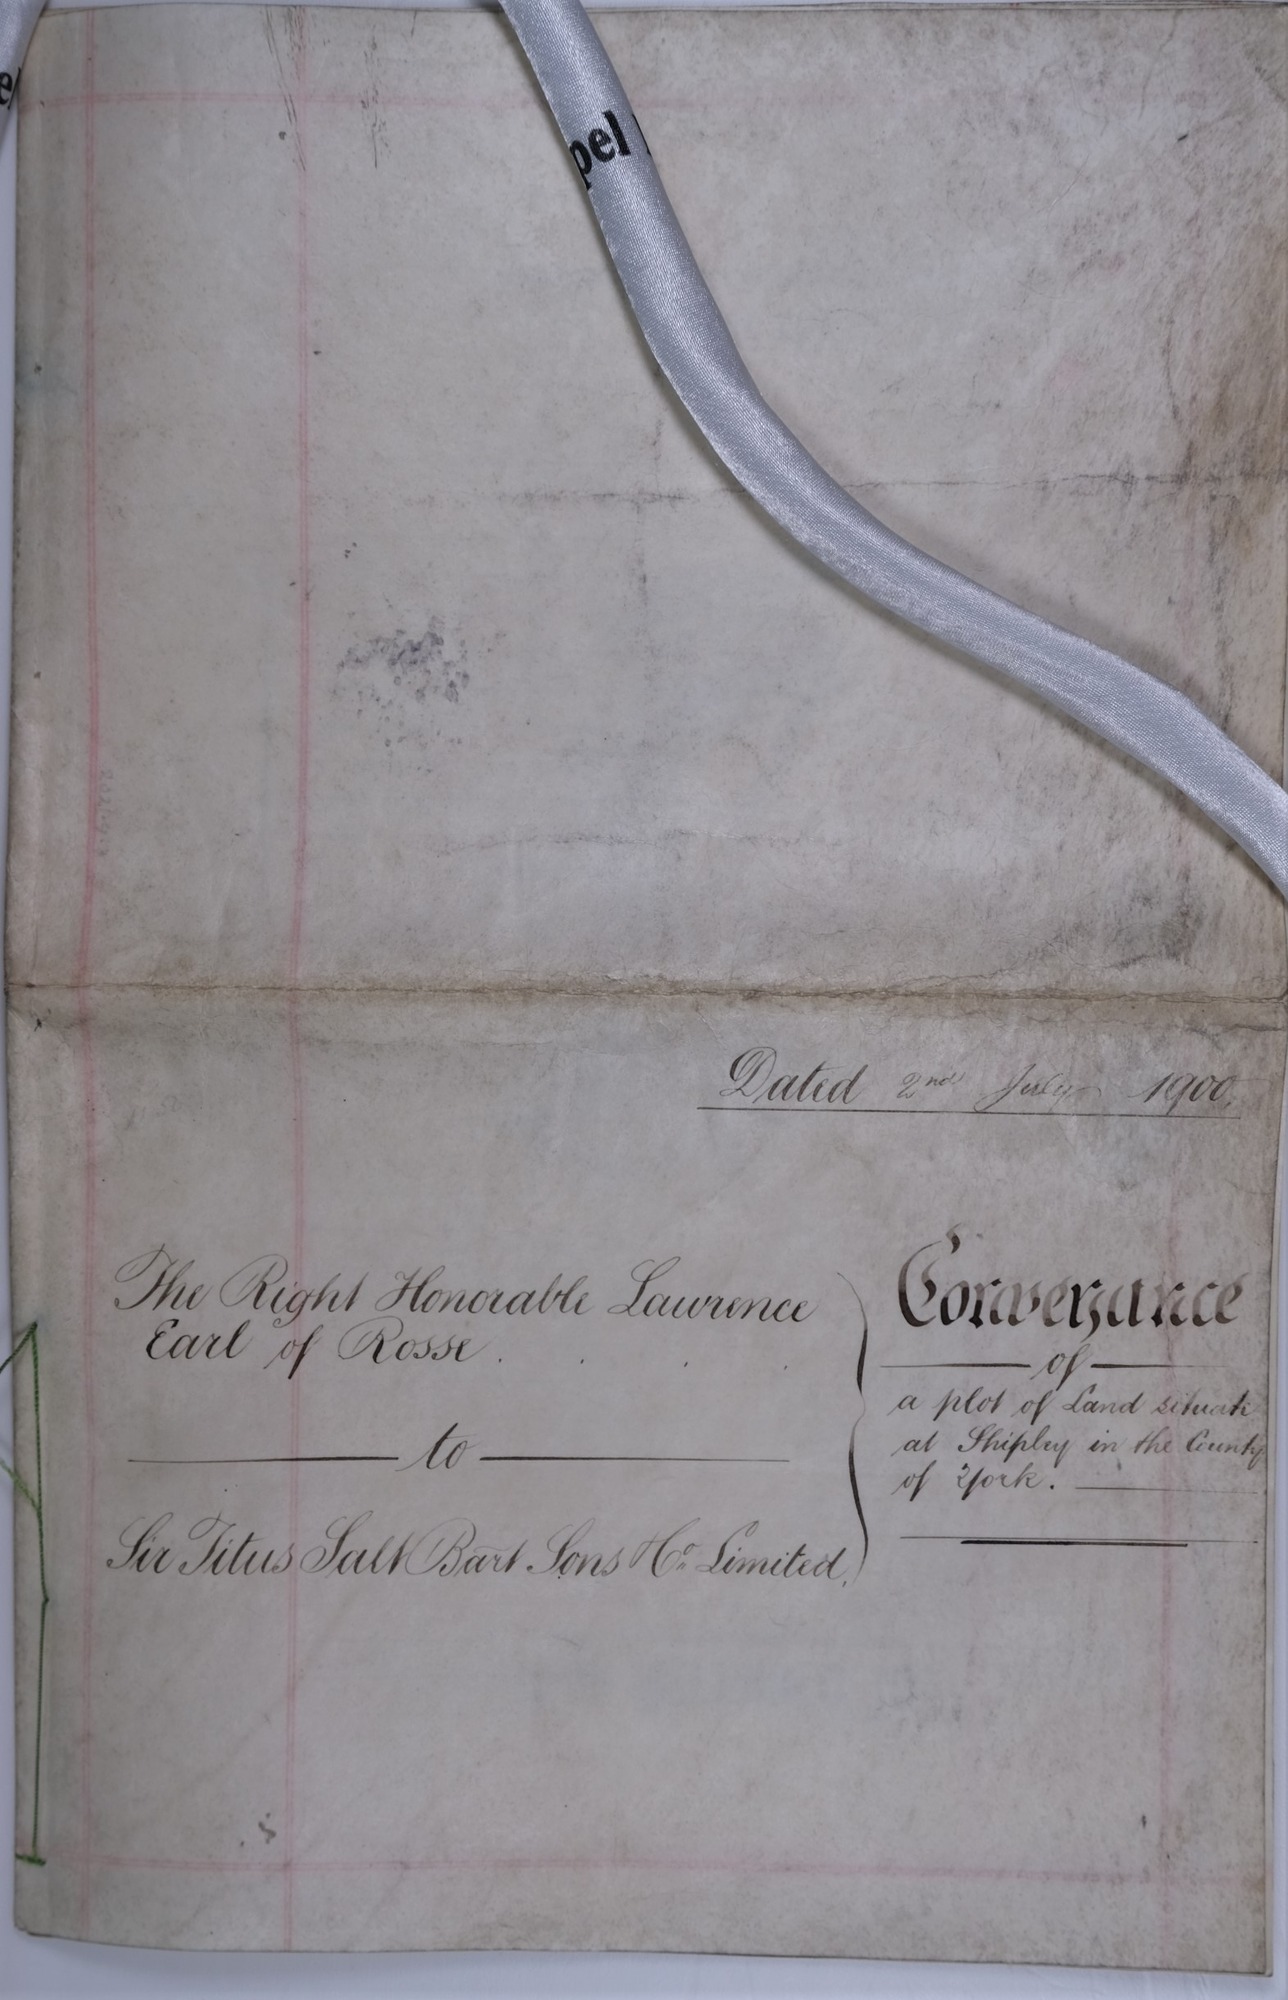 pel
Dated 2nd July 1900.
The Right Honorable Lawrence
Earl of Rosse.
to
Sir Titus Salt Bart. Sons & Co. Limited.
Conveyance
of
a plot of Land situate
at Shipley in the County
of York.